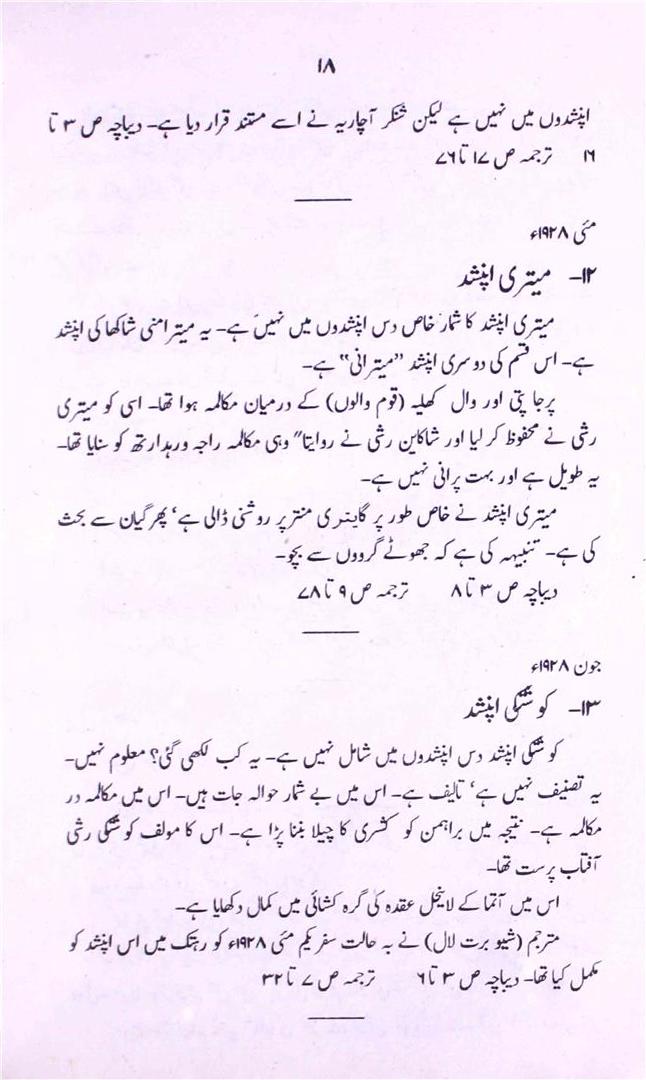 ۱۸
اپنشدوں میں نہیں ہے لیکن شنکر آچاریہ نے اسے مستند قرار دیا ہے۔ دیباچہ ص ۳ تا
۱۶ ترجمہ ص ۱۷ تا ۷۶
مئی ۱۹۲۸ء
۱۲۔ میتری اپنشد
میتری اپنشد کا شمار خاص دس اپنشدوں میں نہیں ہے۔ یہ میترامنی شاکھا کی اپنشد
ہے۔ اس قسم کی دوسری اپنشد ”میترانی“ ہے۔
پرجاپتی اور وال کھلیہ (قوم والوں) کے درمیان مکالمہ ہوا تھا۔ اسی کو میتری
رشی نے محفوظ کر لیا اور شاکاین رشی نے روایتا" وہی مکالمہ راجہ ورہدارتھ کو سنایا تھا۔
یہ طویل ہے اور بہت پرانی نہیں ہے۔
میتری اپنشد نے خاص طور پر گایتری منتر پر روشنی ڈالی ہے‘ پھر گیان سے بحث
کی ہے۔ تنبیہہ کی ہے کہ جھوٹے گرووں سے بچو۔
دیباچہ ص ۳ تا ۸ ترجمہ ص ۹ تا ۷۸
جون ۱۹۲۸ء
۱۳۔ کوشتکی اپنشد
کوشتکی اپنشد دس اپنشدوں میں شامل نہیں ہے۔ یہ کب لکھی گئی؟ معلوم نہیں۔
یہ تصنیف نہیں ہے‘ تالیف ہے۔ اس میں بے شمار حوالہ جات ہیں۔ اس میں مکالمہ در
مکالمہ ہے۔ نتیجہ میں براہمن کو کشتری کا چیلا بننا پڑا ہے۔ اس کا مولف کوشتکی رشی
آفتاب پرست تھا۔
اس میں آتما کے لاینحل عقدہ کی گرہ کشائی میں کمال دکھایا ہے۔
مترجم (شیو برت لال) نے بہ حالت سفر یکم مئی ۱۹۲۸ء کو رہتک میں اس اپنشد کو
مکمل کیا تھا۔ دیباچہ ص ۳ تا ۶ ترجمہ ص ۷ تا ۳۲